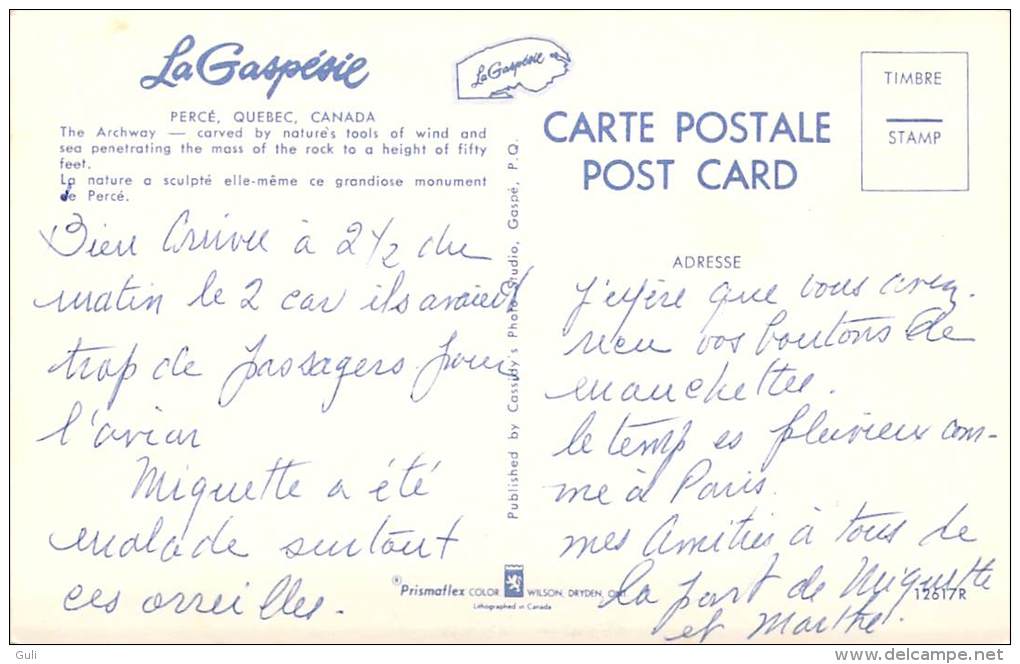 La Gaspésie
La Gaspésie
PERCÉ, QUEBEC, CANADA
The Archway — carved by nature's tools of wind and
sea penetrating the mass of the rock to a height of fifty
feet.
La nature a sculpté elle-même ce grandiose monument
de Percé.
CARTE POSTALE
POST CARD
TIMBRE
STAMP
Published by Cassidy's Photo Studio, Gaspé, P.Q.
Bien arrivée à 2 1/2 du
matin le 2 car ils avaient
trop de passagers pour
l'avion
Miquette a été
malade surtout
ces orreilles.
ADRESSE
j'espère que vous avez
reçu vos boutons de
manchettes.
le temp es pluvieux com-
me à Paris.
mes Amitiés à tous de
la part de Miquette
et Marthe.
Prismaflex COLOR WILSON, DRYDEN, ONT.
Lithographed in Canada
12617R
Guli
www.delcampe.net